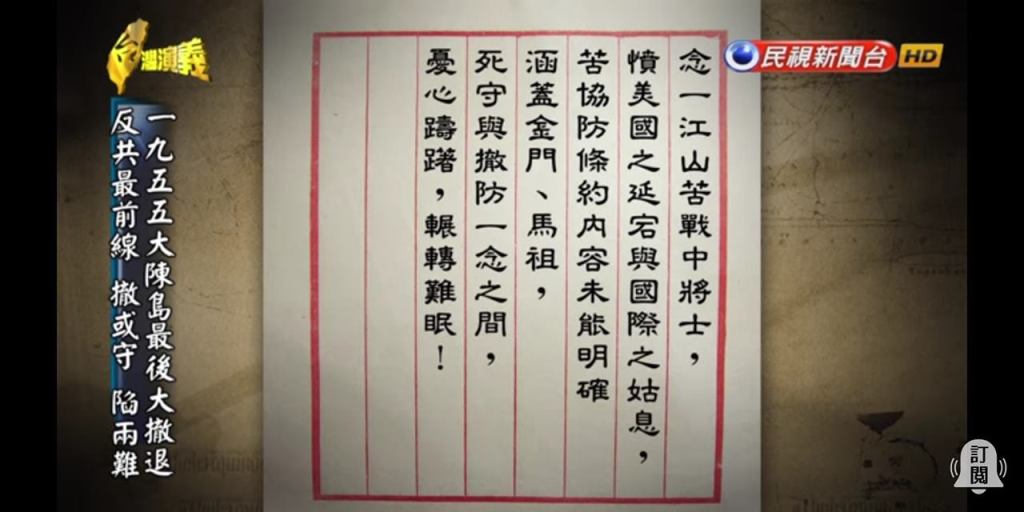 台灣演義
民視新聞台 HD
念一江山苦戰中將士，
憤美國之延宕與國際之姑息，
苦協防條約內容未能明確
涵蓋金門、馬祖，
死守與撤防一念之間，
憂心躊躇，輾轉難眠！
一九五五大陳島最後大撤退
反共最前線 撤或守 陷兩難
訂閱